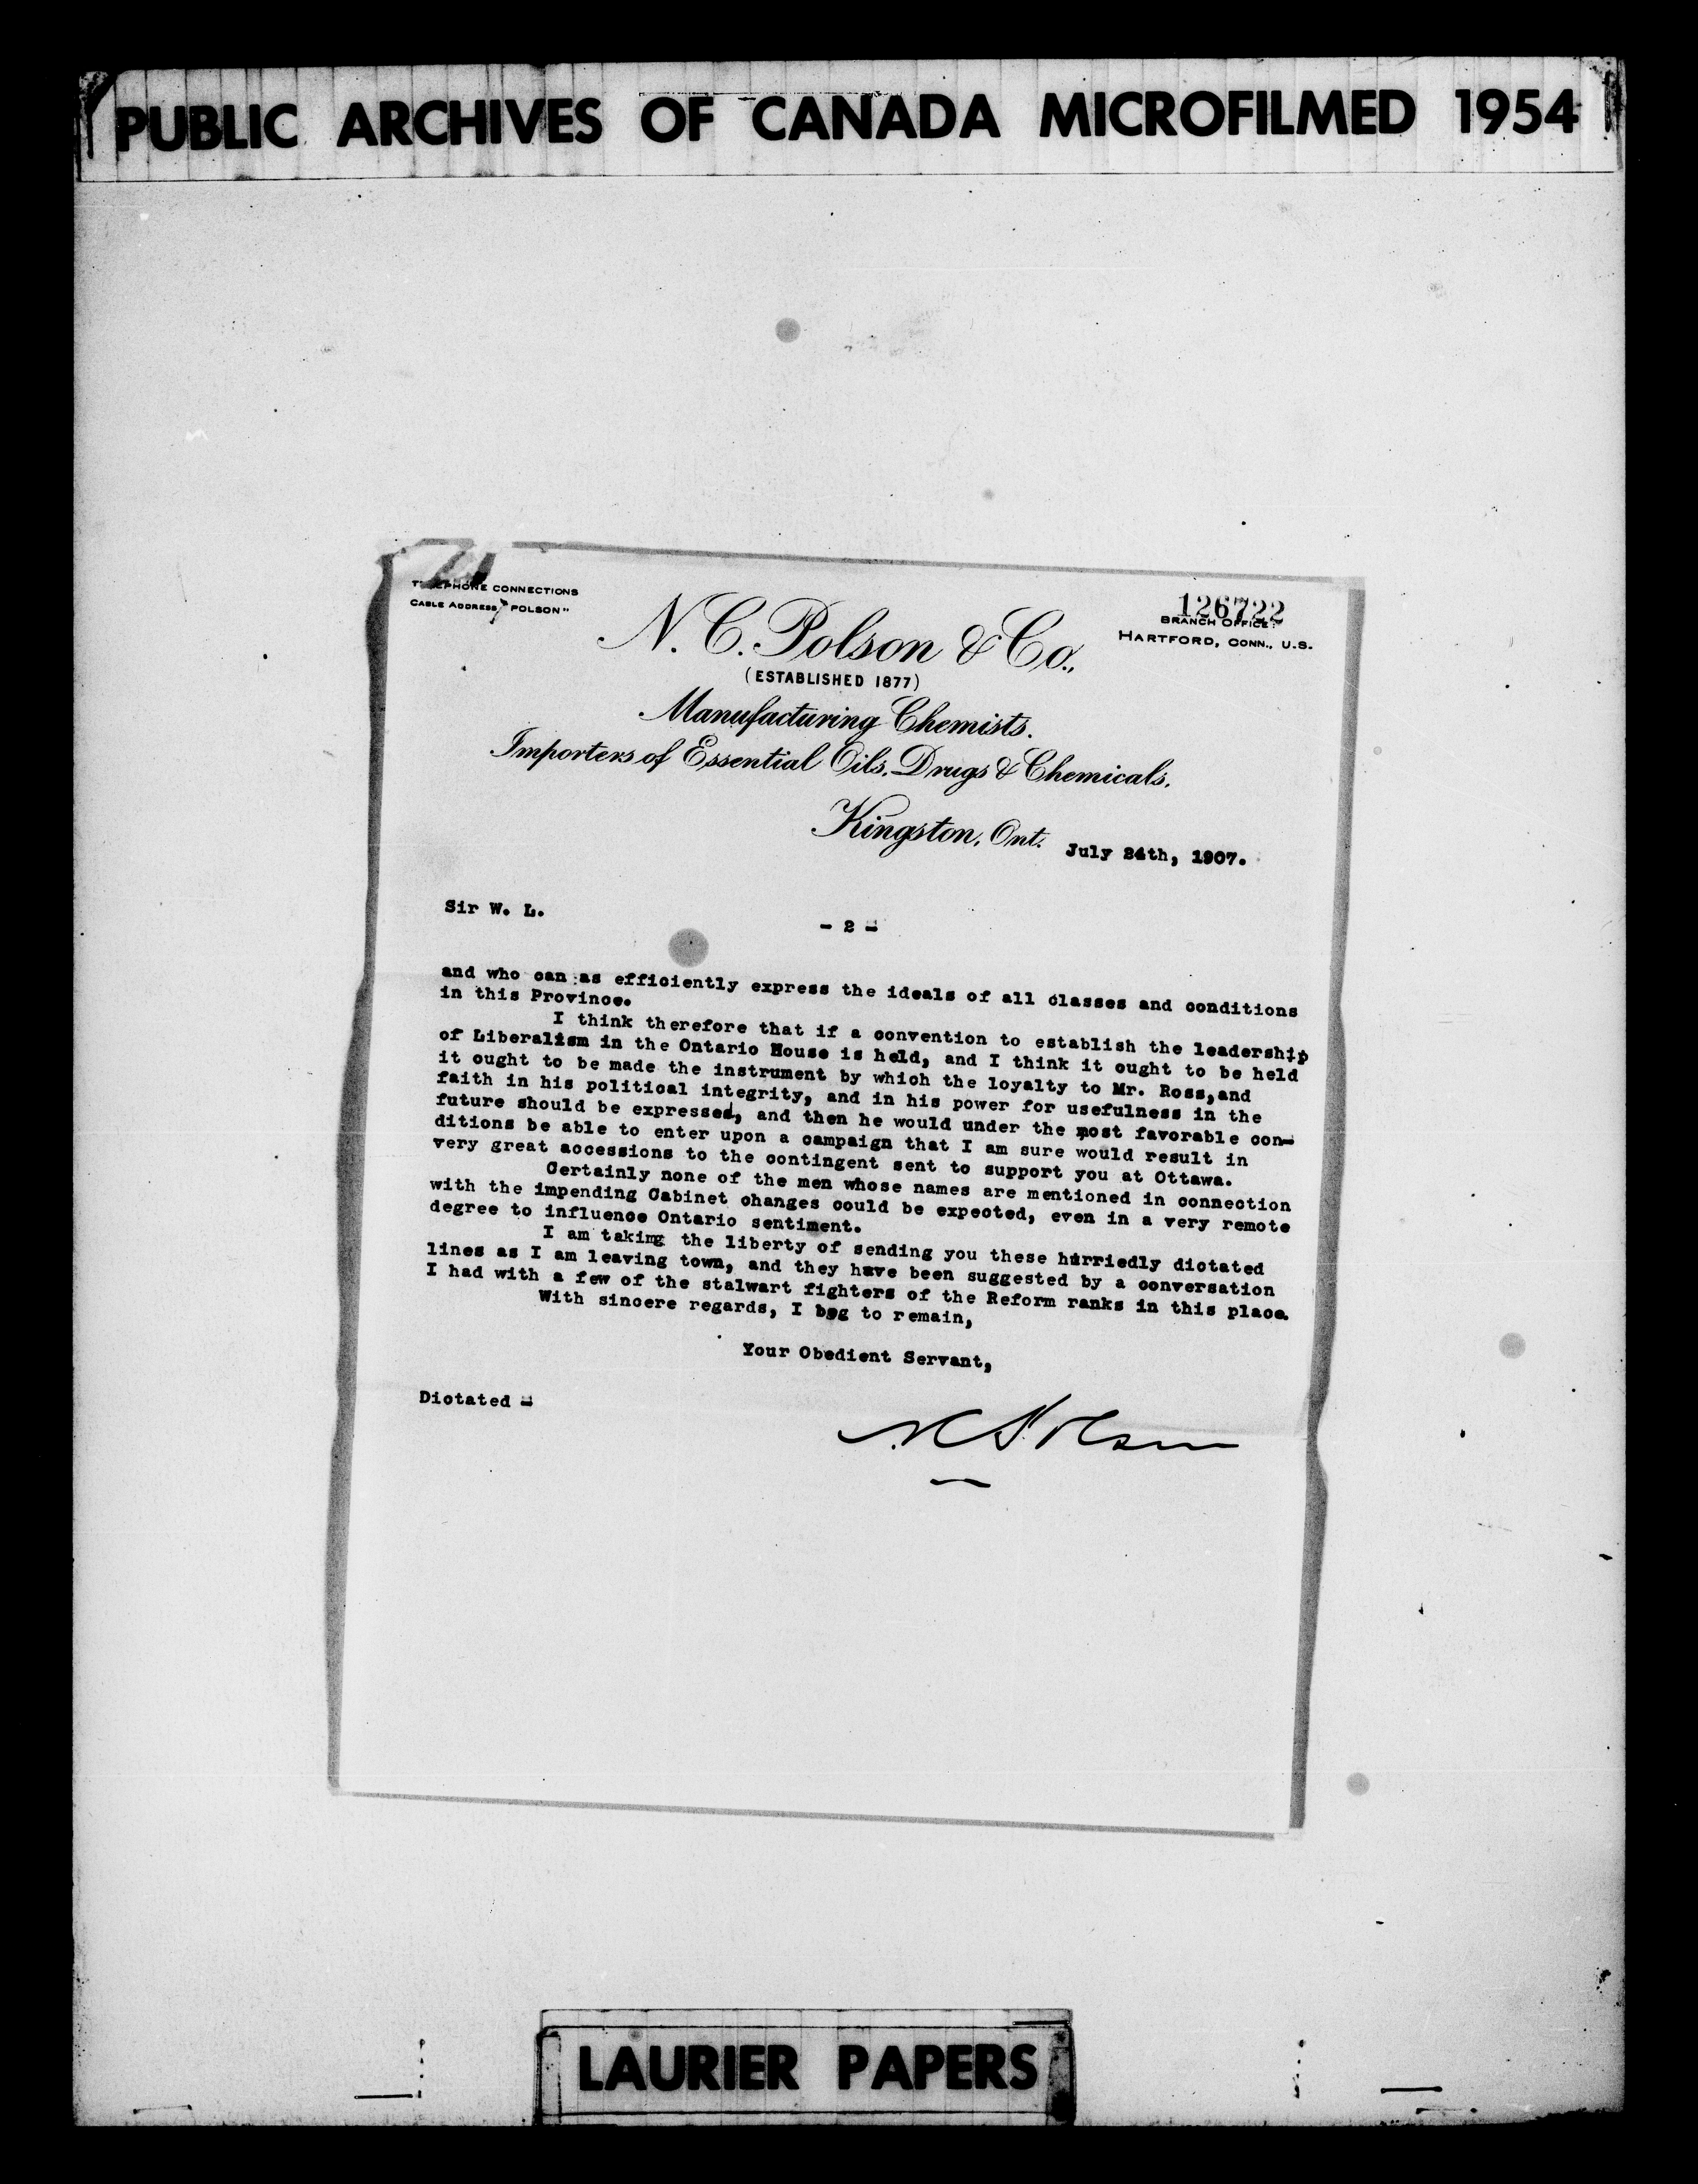 PUBLIC ARCHIVES OF CANADA MICROFILMED 1954
TELEPHONE CONNECTIONS
CABLE ADDRESS, "POLSON"
126722
BRANCH OFFICE:
HARTFORD, CONN., U.S.
N. C. Polson & Co.,
(ESTABLISHED 1877)
Manufacturing Chemists.
Importers of Essential Oils, Drugs & Chemicals.
Kingston, Ont. July 24th, 1907.
Sir W. L.
- 2 -
and who can as efficiently express the ideals of all classes and conditions
in this Province.
I think therefore that if a convention to establish the leadership
of Liberalism in the Ontario House is held, and I think it ought to be held
it ought to be made the instrument by which the loyalty to Mr. Ross,and
faith in his political integrity, and in his power for usefulness in the
future should be expressed, and then he would under the most favorable con-
ditions be able to enter upon a campaign that I am sure would result in
very great accessions to the contingent sent to support you at Ottawa.
Certainly none of the men whose names are mentioned in connection
with the impending Cabinet changes could be expected, even in a very remote
degree to influence Ontario sentiment.
I am taking the liberty of sending you these hurriedly dictated
lines as I am leaving town, and they have been suggested by a conversation
I had with a few of the stalwart fighters of the Reform ranks in this place.
With sincere regards, I beg to remain,
Your Obedient Servant,
Dictated -
N C Polson
LAURIER PAPERS